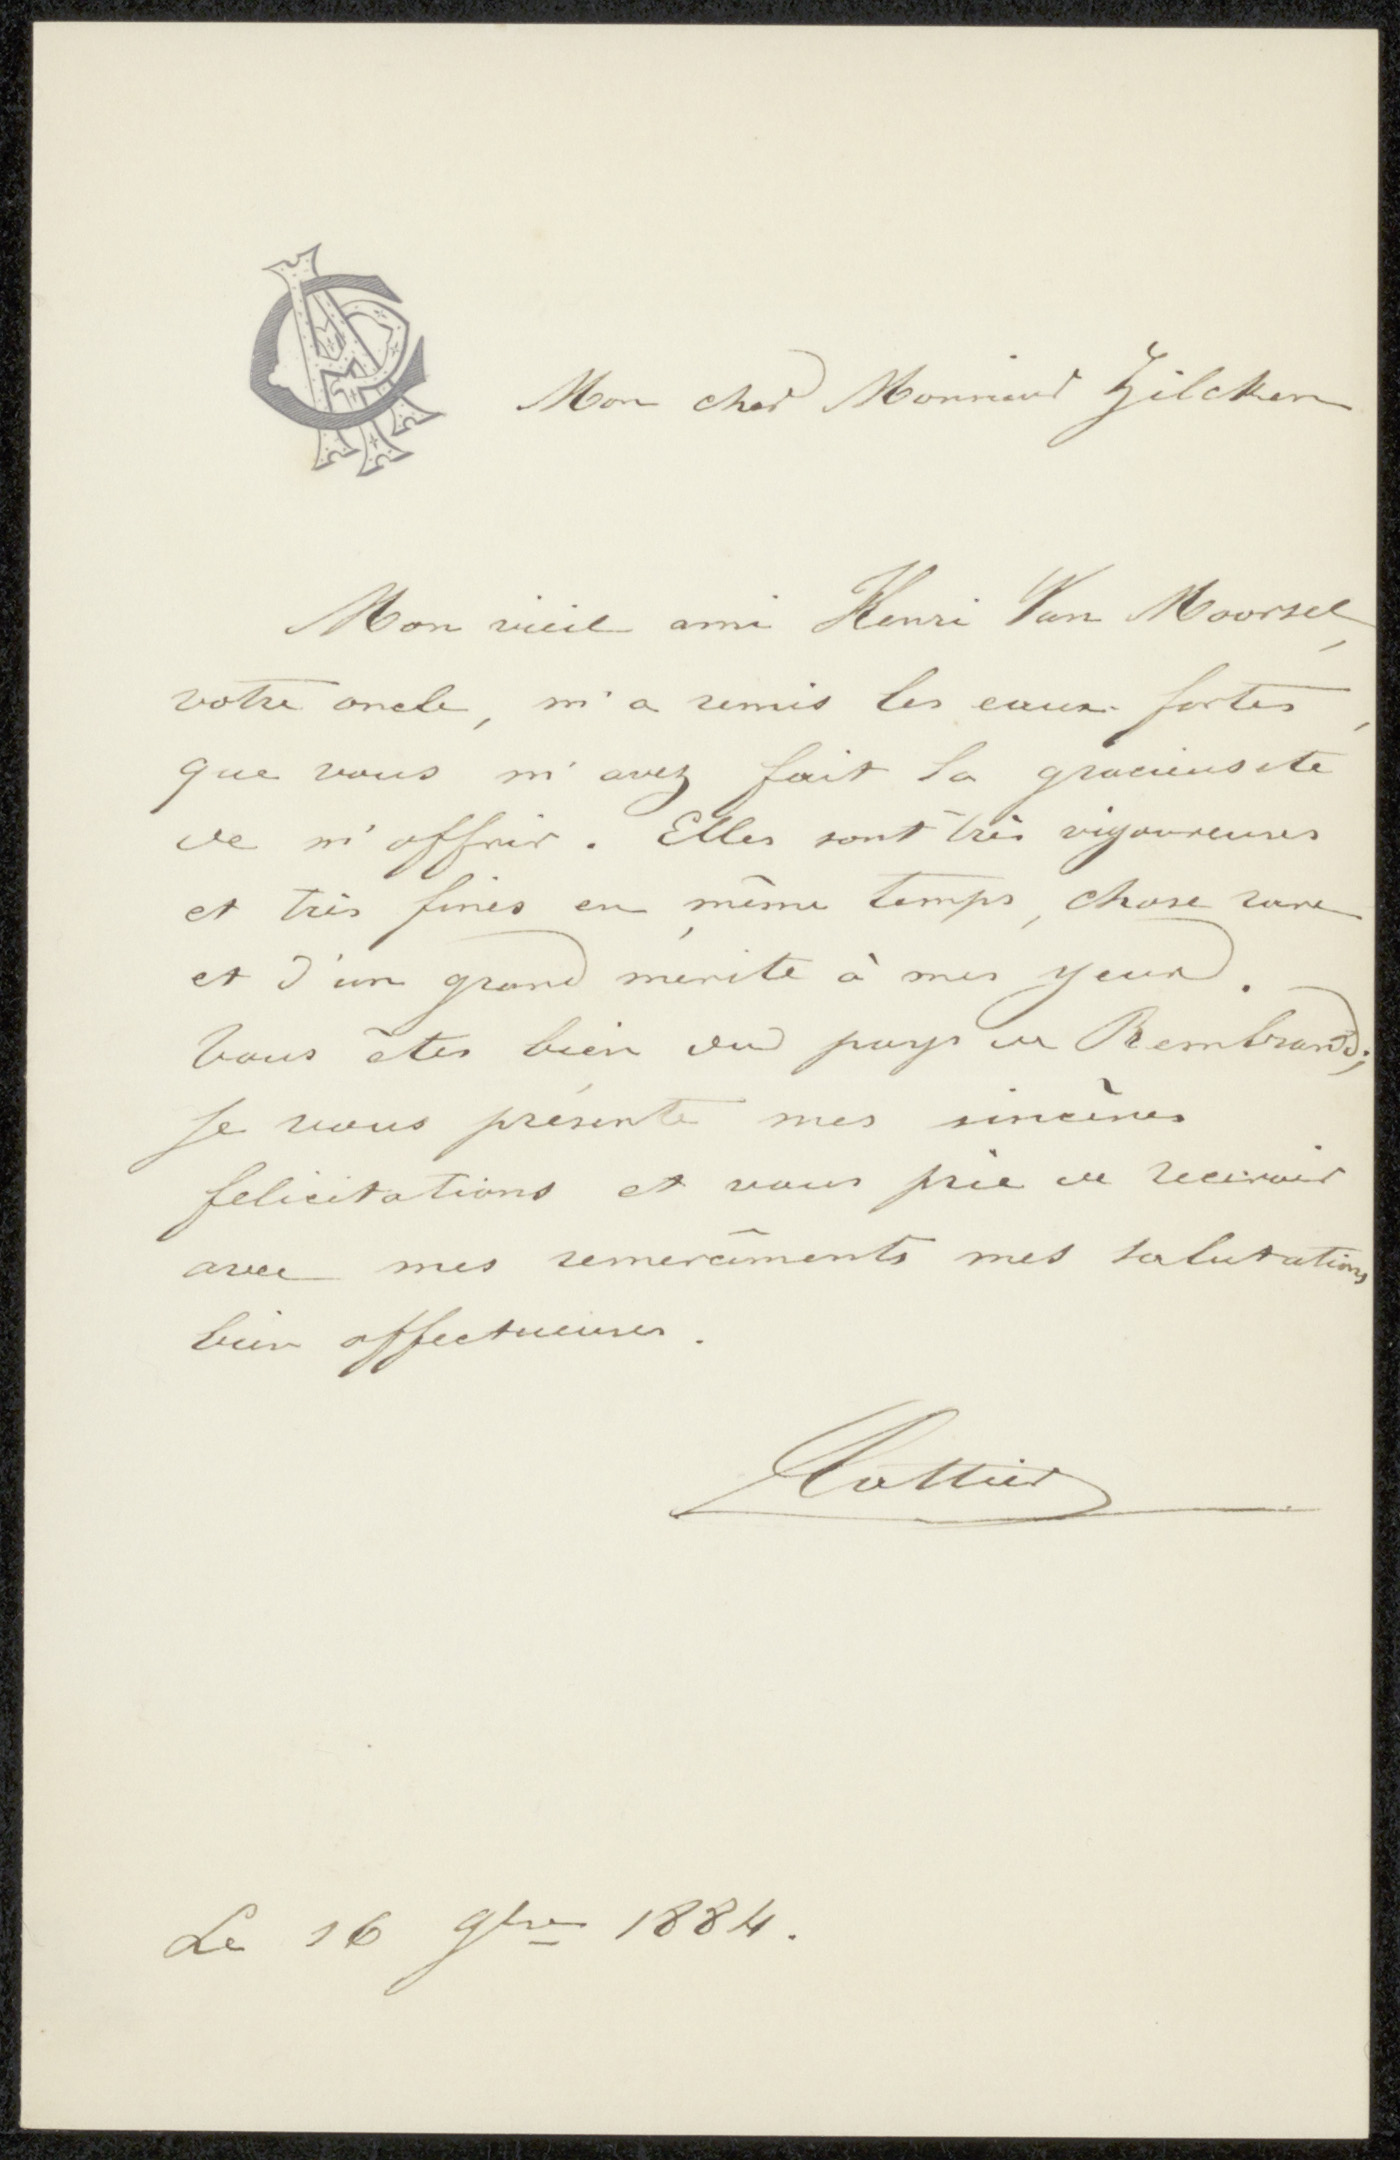 Mon cher Monsieur Zilcken
Mon vieil ami Henri Van Moorsel,
votre oncle, m'a remis les eaux-fortes,
que vous m'avez fait la gracieusete
de m'offrir. Elles sont très vigoureuses
et très fines en même temps, chose rare
et d'un grand mérite à mes yeux.
Vous êtes bien du pays de Rembrandt;
je vous présente mes sincères
felicitations et vous prie de recevoir
avec mes remercîments mes salutations
bien affectueuses.
Le 16 9bre 1884.